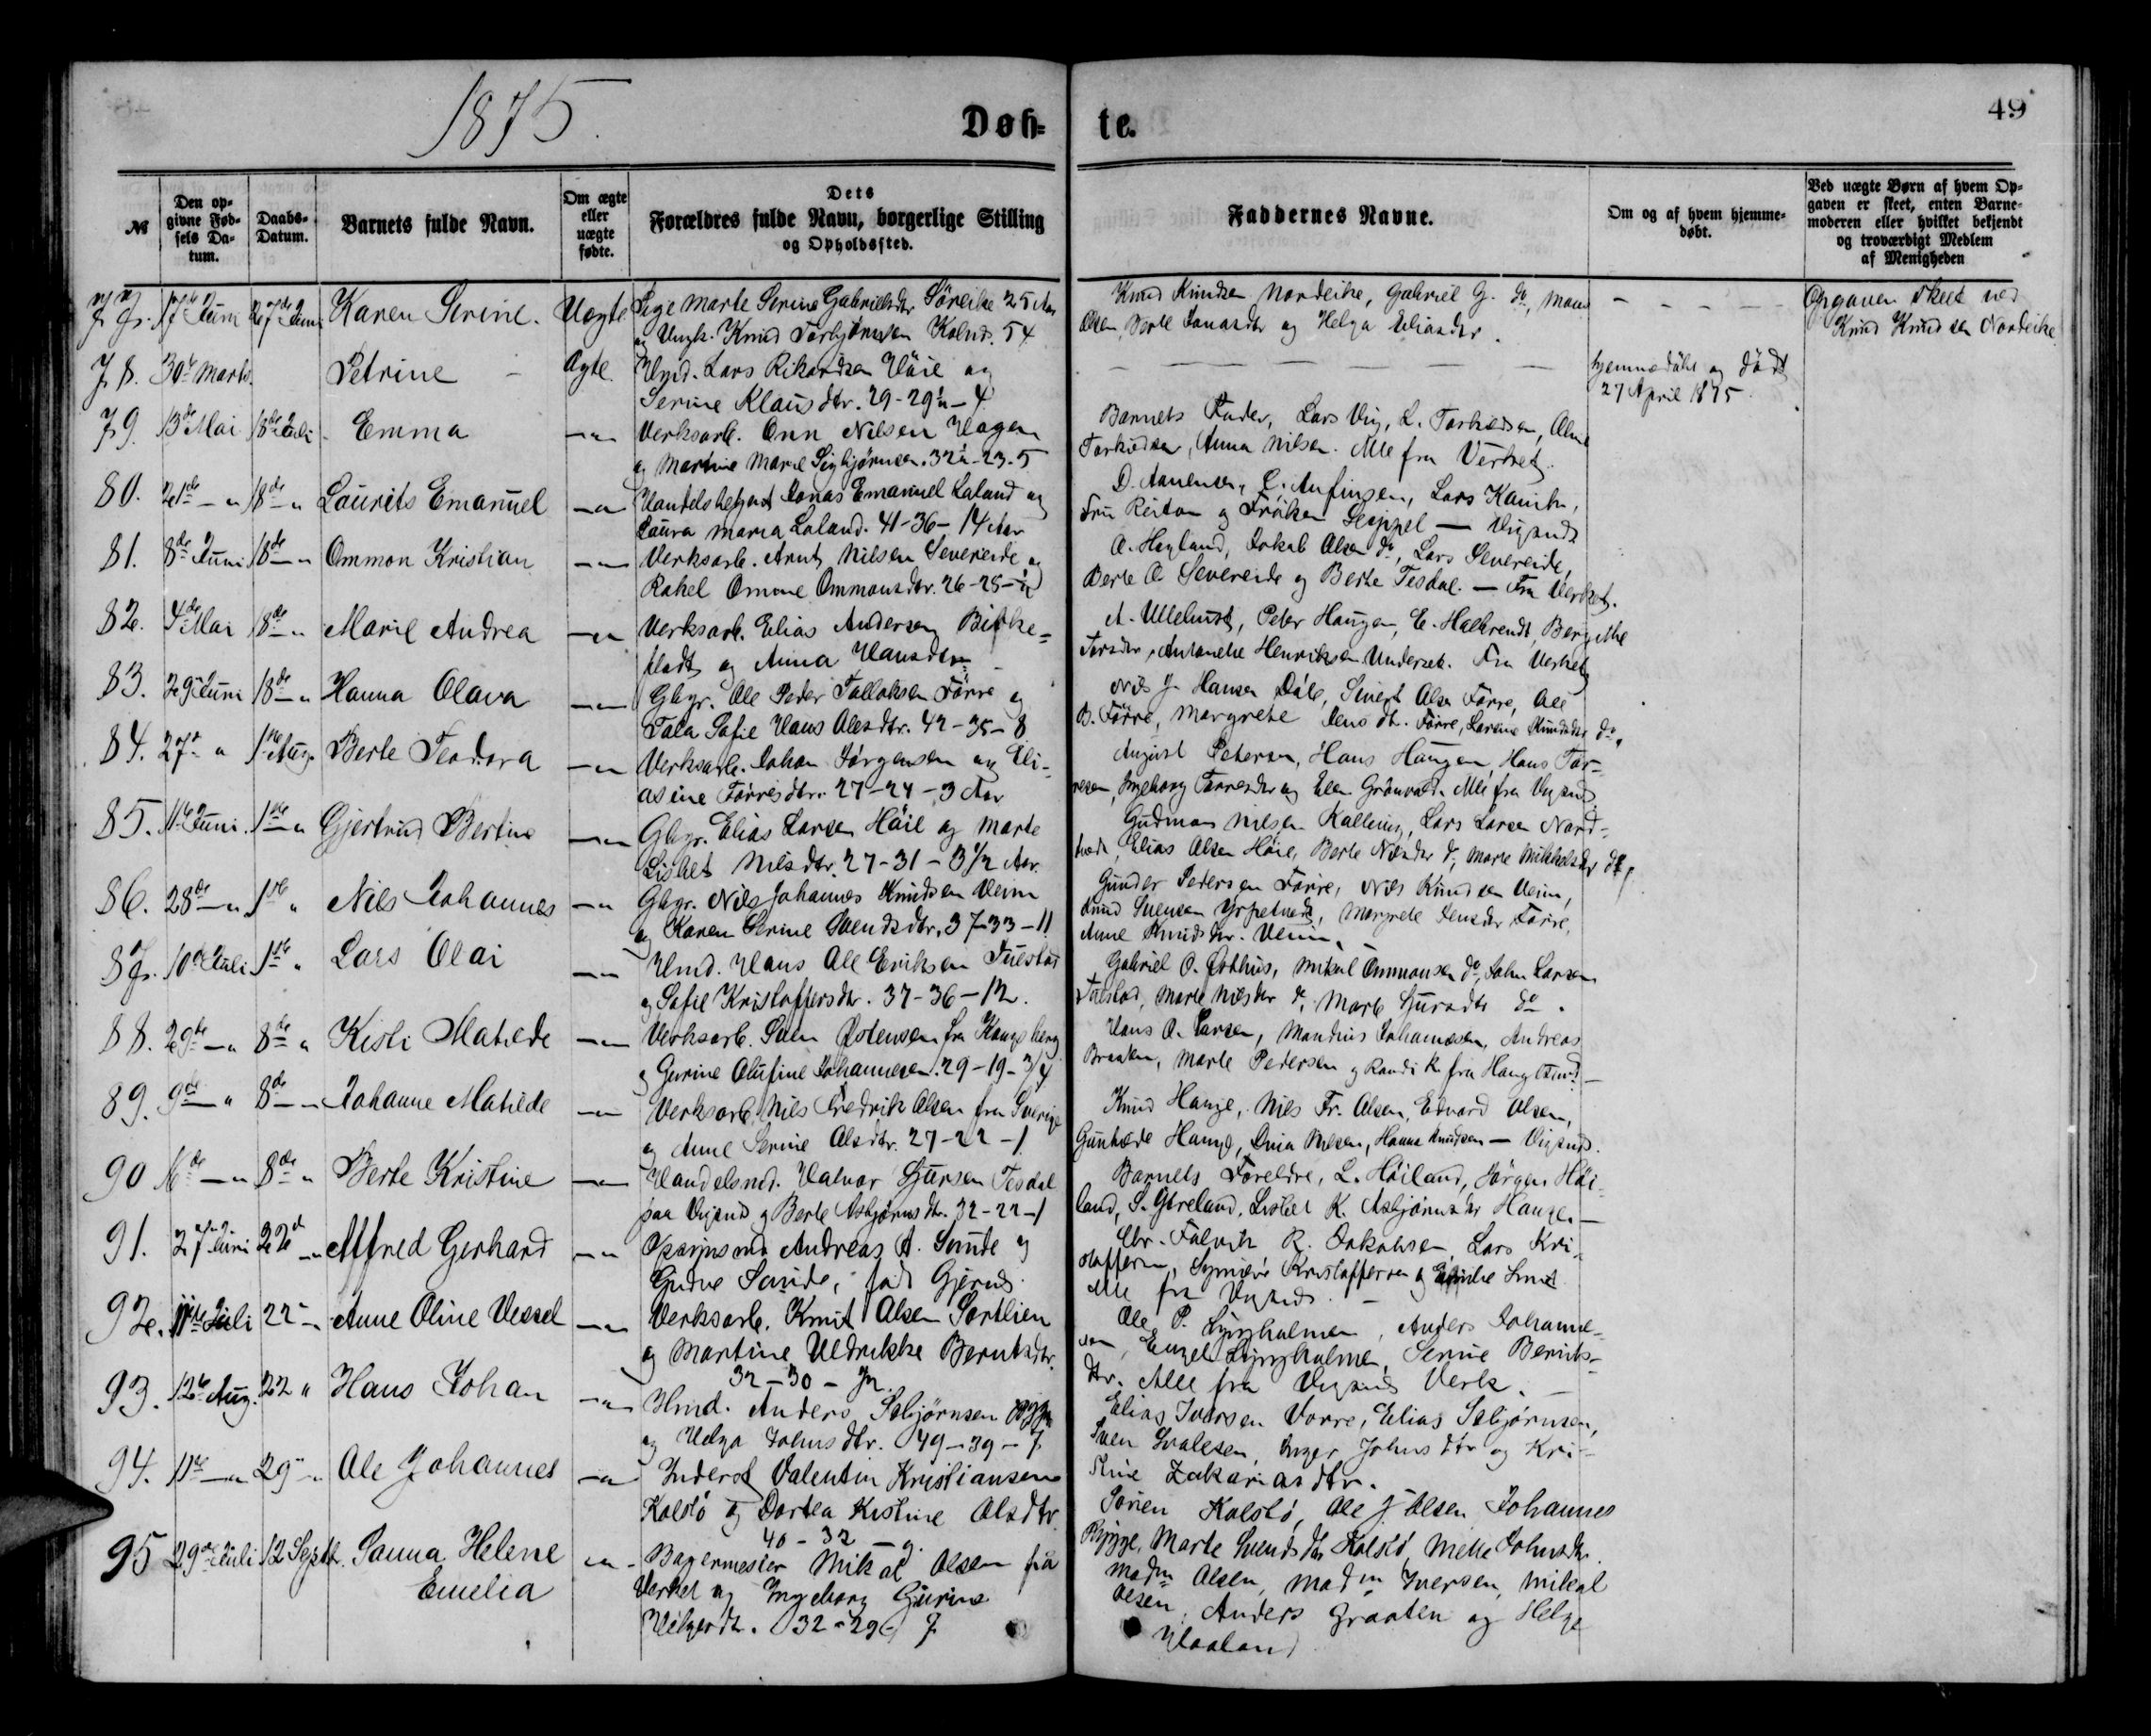 1875.
Døb-
te.
49
№
Den op-
givne Føb-
sels Da-
tum.
Daabs-
Datum.
Barnets fulde Navn.
Om ægte
eller
uægte
fødte.
Dets
Forældres fulde Navn, borgerlige Stilling
og Opholdssted.
Faddernes Navne.
Om og af hvem hjemme-
døbt.
Ved uægte Børn af hvem Op-
gaven er skeet, enten Barne-
moderen eller hvilket bekjendt
og troværdigt Medlem
af Menigheden
77. 17de Juni 27de Juni Karen Serine. Uægte Pige Marte Serine Gabrielsdtr Søreike 25 Aar
og Ungk. Knud Torbjørnsen Kolnds. 54
Knud Knudsen Nordeike, Gabriel G. do, Mons
Olsen, Berte Jonasdtr og Helga Eliasdtr.
Opgaven skeet ved
Knud Knudsen Nordeike
78. 30te Marts. Petrine Ægte Hmd. Lars Rikardsen Våie og
Serine Klausdtr. 29-29½-4
hjemmedøbt og død
27 April 1875.
79. 13de Mai 18de Juli Emma Verksarb. Onn Nilsen Hagen
og Martine Marie Sigbjørnsen. 32½-23-5
Barnets Fader, Lars Vig, L. Torkedsen, Oline
Torkildsen, Anna Nilsen. Alle fra Verket.
80. 21de - " 18de " Laurits Emanuel Handelsbetjent Jonas Emanuel Laland og
Laura Maria Laland. 41-36-14 Aar
D. Aanensen, C. Anfinsen, Lars
Fru og Frøken - Vigsnds
81. 8de Juni 18de " Ommon Kristian Verksarb. Arnt Nilsen Severeide og
Rakel Omme Ommonsdtr. 26-25-½
A. Høyland, Jakob Olsen do, Lars Severeide,
Berte O. Severeide og Berte Tesdal. - Fra Verket.
82. 4de Mai 18de " Marie Andrea Verksarb. Elias Andersen
og Anna Hansdtr.
A. Ullehust, Peter Haugen, E. Halbrendt, Bergithe
Antonette Henriksen Underset. Fra Verket
83. 29de Juni 18de " Hanna Olava Gbgr. Ole Peder Tolloksen Førre og
Tala Sofie Hans Olesdtr. 42-35-8
Nils J. Hansen Dåle, Sivert Olsen Førre, Ole
B. Førre, Margrete Jensdtr. Førre, Lavine Knudsdtr do.
84. 27de " 1ste Aug. Berte Teodora Verksarb. Johan Jørgensen og Eli-
asine Tørresdtr. 27-24-3 Aar
August Petersen, Hans Haugen, Hans Tør-
resen, Ingeborg Tørresdtr og Elen Grønvold. Alle fra Vigsnds
85. 11te Juni. 1ste - " Gjertrud Bertine Gbgr. Elias Larsen Håie og Marte
Lisbet Nilsdtr. 27-31-3½ Aar.
Gudmon Nilsen Kallevig, Lars Larsen Nord-
Elias Olsen Håie, Berte do, Marte Mikkelsdtr do.
86. 28de - " 1ste " Nils Johannes Gbgr. Nils Johannes Knudsen Veim
og Karen Serine Svendsdtr. 37-33-11
Gunder Pedersen Førre, Nils Knudsen Veim,
Knud Svensen, Margrete Jensdtr Førre,
Anne Knudsdtr. Veim.
87. 10de Juli 1ste " Lars Olai Hmd. Hans Ole Eriksen Tuestad
og Sofie Kristoffersdtr. 37-36-12.
Gabriel O. Østhus, Mikal Ommonsen do, John Larsen
Tuestad, Marte Nilsdtr do, Marte Sjursdtr do.
88. 29de - " 8de " Kisti Matilde Verksarb. Sven Østensen fra Kongsberg
og Gurine Olufine Johannesen. 29-19-3/4
Hans O. Larsen, Mandius Johannesen, Andreas
Braaten, Marte Pedersen og Randi K. fra
89. 9de - " 8de - " Johanne Matilde Verksarb. Nils Fredrik Olsen fra Sverige
og Anne Serine Olsdtr. 27-22-1
Knud Hauge, Nils Fr. Olsen, Edvard Olsen,
Gunhilde Hauge, Nilsen, Hanna Knudsen - Vigsnds.
90 16de - " 8de " Berte Kristine Handelsmd. Halvor Sjursen Tesdal
paa Vigsnds og Berte Asbjørnsdtr. 32-22-1
Barnets Foreldre, L. Høiland, Jørgen Høi-
land, S. Gjereland, Lisbet K. Asbjørnsdtr Hauge. -
91. 27de Juni 22de - " Alfred Gerhard Opsynsmd Andreas A. Sunde og
Gudve Sunde, født Gjerds.
Chr. Falvik, R. Jakobsen, Lars Kri-
stoffersen, Kristoffersen og
Alle fra Vigsnds. -
92. 11te Juli 22 - " Anne Oline Vessel Verksarb. Knut Olsen Sortlien
og Martine Uldrikke Berntsdtr.
32-30-½.
Ole P. Lyngholmen, Anders Johanne-
sen, Engel Lyngholmen, Serine Bernts-
dtr. Alle fra Vigsnds Verk. -
93. 12te Aug. 22 " Hans Johan Hmd. Anders Sebjørnsen Rygge
og Helga Johnsdtr. 49-39-7
Elias Ivarsen Vorre, Elias Sebjørnsen,
Sven Svalesen, Inger Johnsdtr og Kri-
stine Zakariasdtr.
94. 11te - " 29 - " Ole Johannes Inderst Valentin Kristiansen
Kolstø og Dortea Kistine Olsdtr.
40-32-9.
Søren Kolstø, Ole J. Olsen, Johannes
Rygge, Marte Svendsdtr Kolstø, Mette Johnsdtr.
95 29de Juli 12 Septbr. Sanna Helene
Emelia
Bagermester Mikal Olsen fra
Verket og Ingeborg Gurine
Helgesdtr. 32-29-7
Madm Olsen, Madm Iversen, Mikal
Olsen, Anders Graaten og Helge
Vaaland